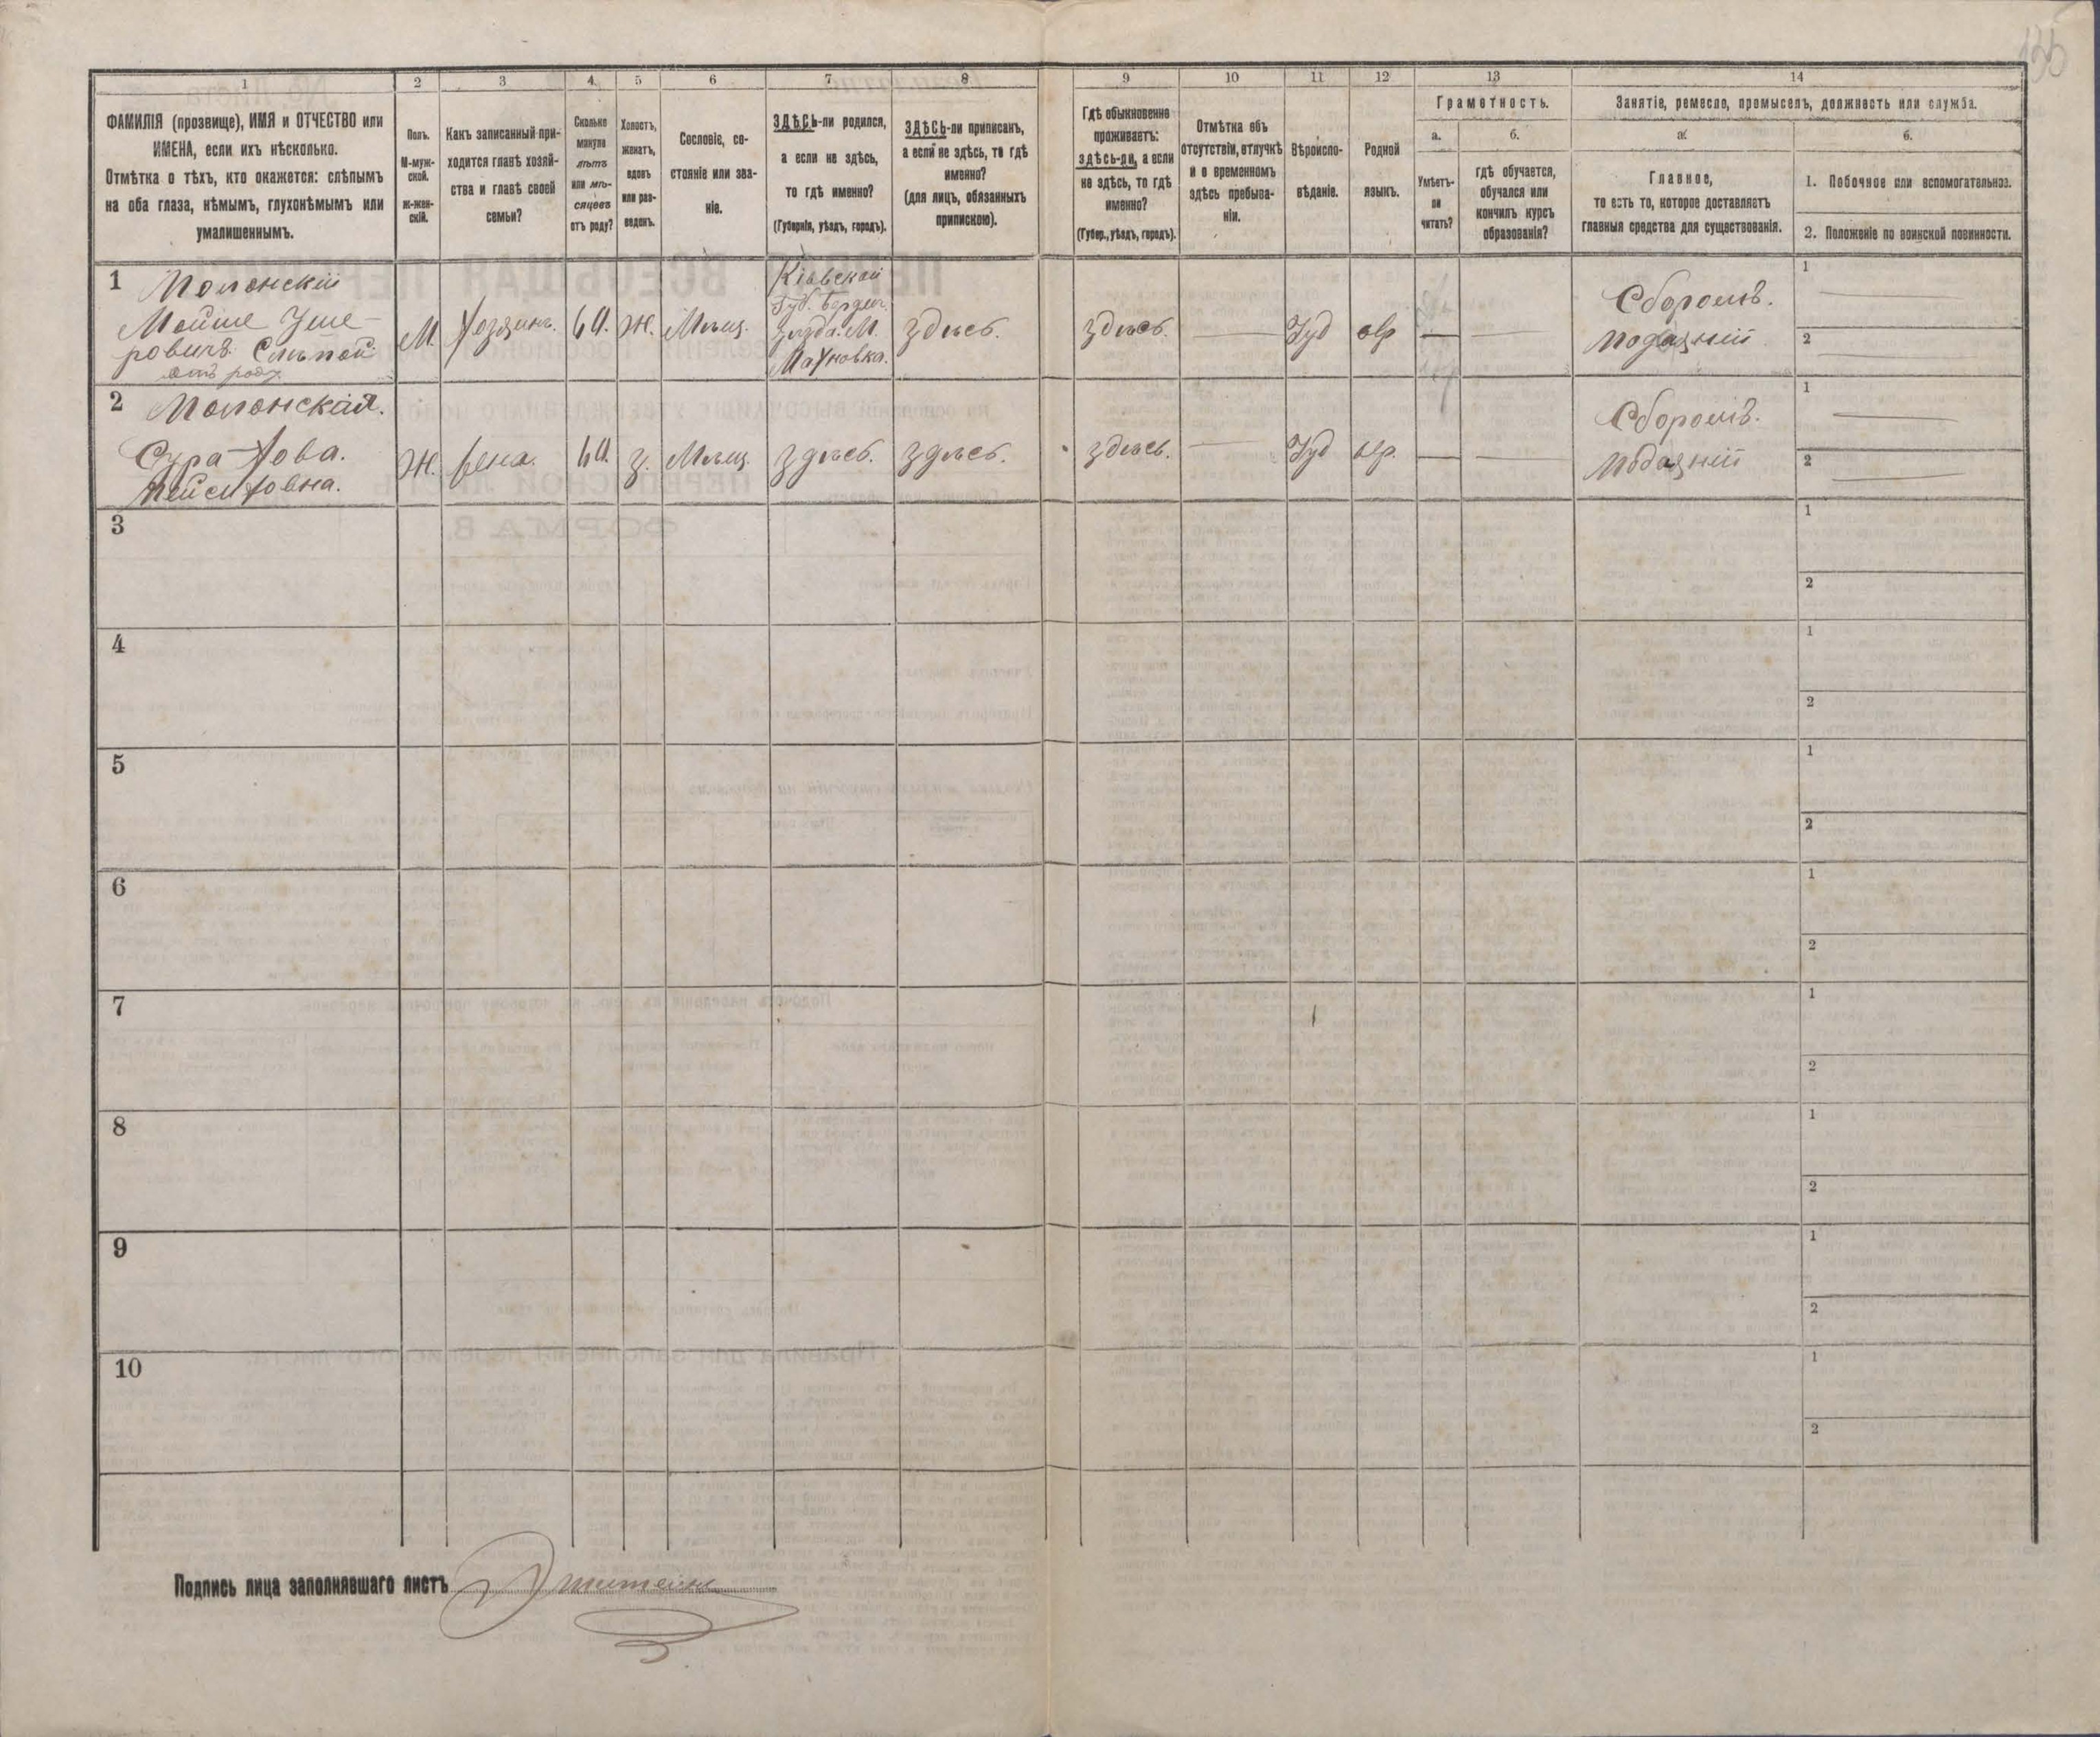 135
1
2
3
4
5
6
7
8
9
10
11
12
13
14
ФАМИЛІЯ (прозвище), ИМЯ и ОТЧЕСТВО или
ИМЕНА, если ихъ нѣсколько.
Отмѣтка о тѣхъ, кто окажется: слѣпымъ
на оба глаза, нѣмымъ, глухонѣмымъ или
умалишеннымъ.
Полъ.
М-муж-
ской.
Ж-жен-
скій.
Какъ записанный при-
ходится главѣ хозяй-
ства и главѣ своей
семьи?
Сколько
минуло
лѣтъ
или мѣ-
сяцевъ
отъ роду?
Холостъ,
женатъ,
вдовъ
или раз-
веденъ.
Сословіе, со-
стояніе или зва-
ніе.
ЗДѢСЬ-ли родился,
а если не здѣсь,
то гдѣ именно?
(Губернія, уѣздъ, городъ).
ЗДѢСЬ-ли приписанъ,
а если не здѣсь, то гдѣ
именно?
(для лицъ, обязанныхъ
припискою).
Гдѣ обыкновенно
проживаетъ:
здѣсь-ли, а если
не здѣсь, то гдѣ
именно?
(Губер., уѣздъ, городъ).
Отмѣтка объ
отсутствіи, отлучкѣ
и о временномъ
здѣсь пребыва-
ніи.
Вѣроиспо-
вѣданіе.
Родной
языкъ.
Грамотность.
а.
б.
Умѣетъ-
ли
читать?
гдѣ обучается,
обучался или
кончилъ курсъ
образованія?
Занятіе, ремесло, промыселъ, должность или служба.
а.
б.
Главное,
то есть то, которое доставляетъ
главныя средства для существованія.
1. Побочное или вспомогательное.
2. Положеніе по воинской повинности.
1 Полонскій
Мойше Уше-
ровичъ Слѣпой
отъ роду
М.
Хозяинъ.
60.
Ж.
Мѣщ.
Кіевской
Губ. Бердич.
Уѣзда. М.
Махновка.
здѣсь.
здѣсь.
Іуд
евр
Сборомъ
подаяній
1
2
2 Полонская.
Сура-Хова.
Ж.
жена.
60.
з.
Мѣщ.
здѣсь.
здѣсь.
здѣсь.
Іуд
евр.
Сборомъ.
подаяній
1
2
3
1
2
4
1
2
5
1
2
6
1
2
7
1
2
8
1
2
9
1
2
10
1
2
Подпись лица заполнявшаго листъ